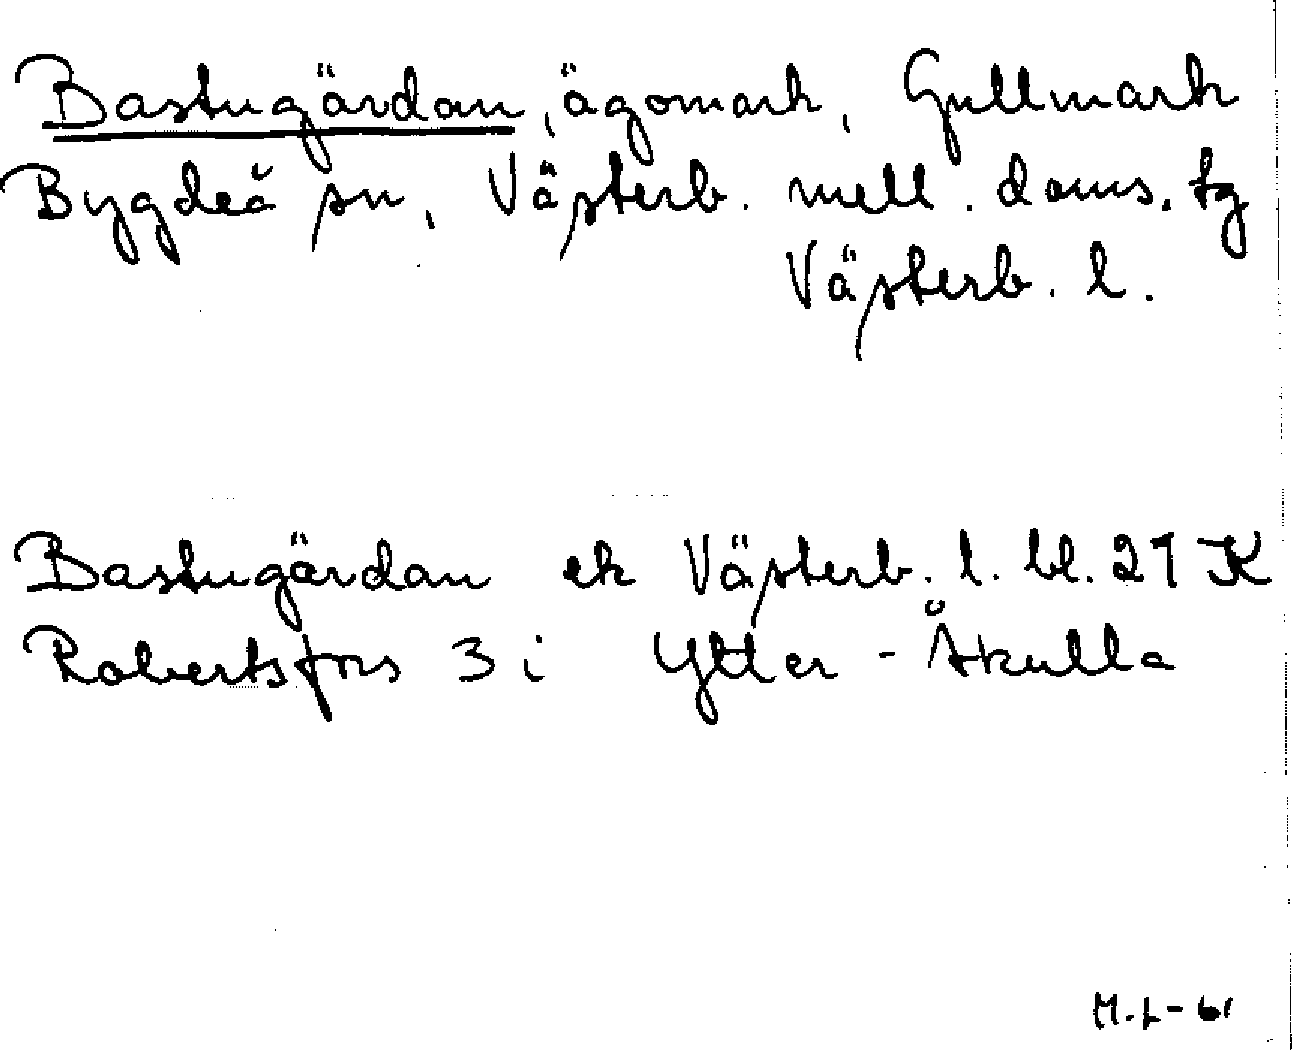 Bastugärdan, ägomark, Gullmark
Bygdeå sn, Västerb. mell. doms. tg
Västerb. l.
Bastugärdan ek Västerb. l. bl. 21 K
Robertsfors 3 i Ytter-Åkulla
M.L-61